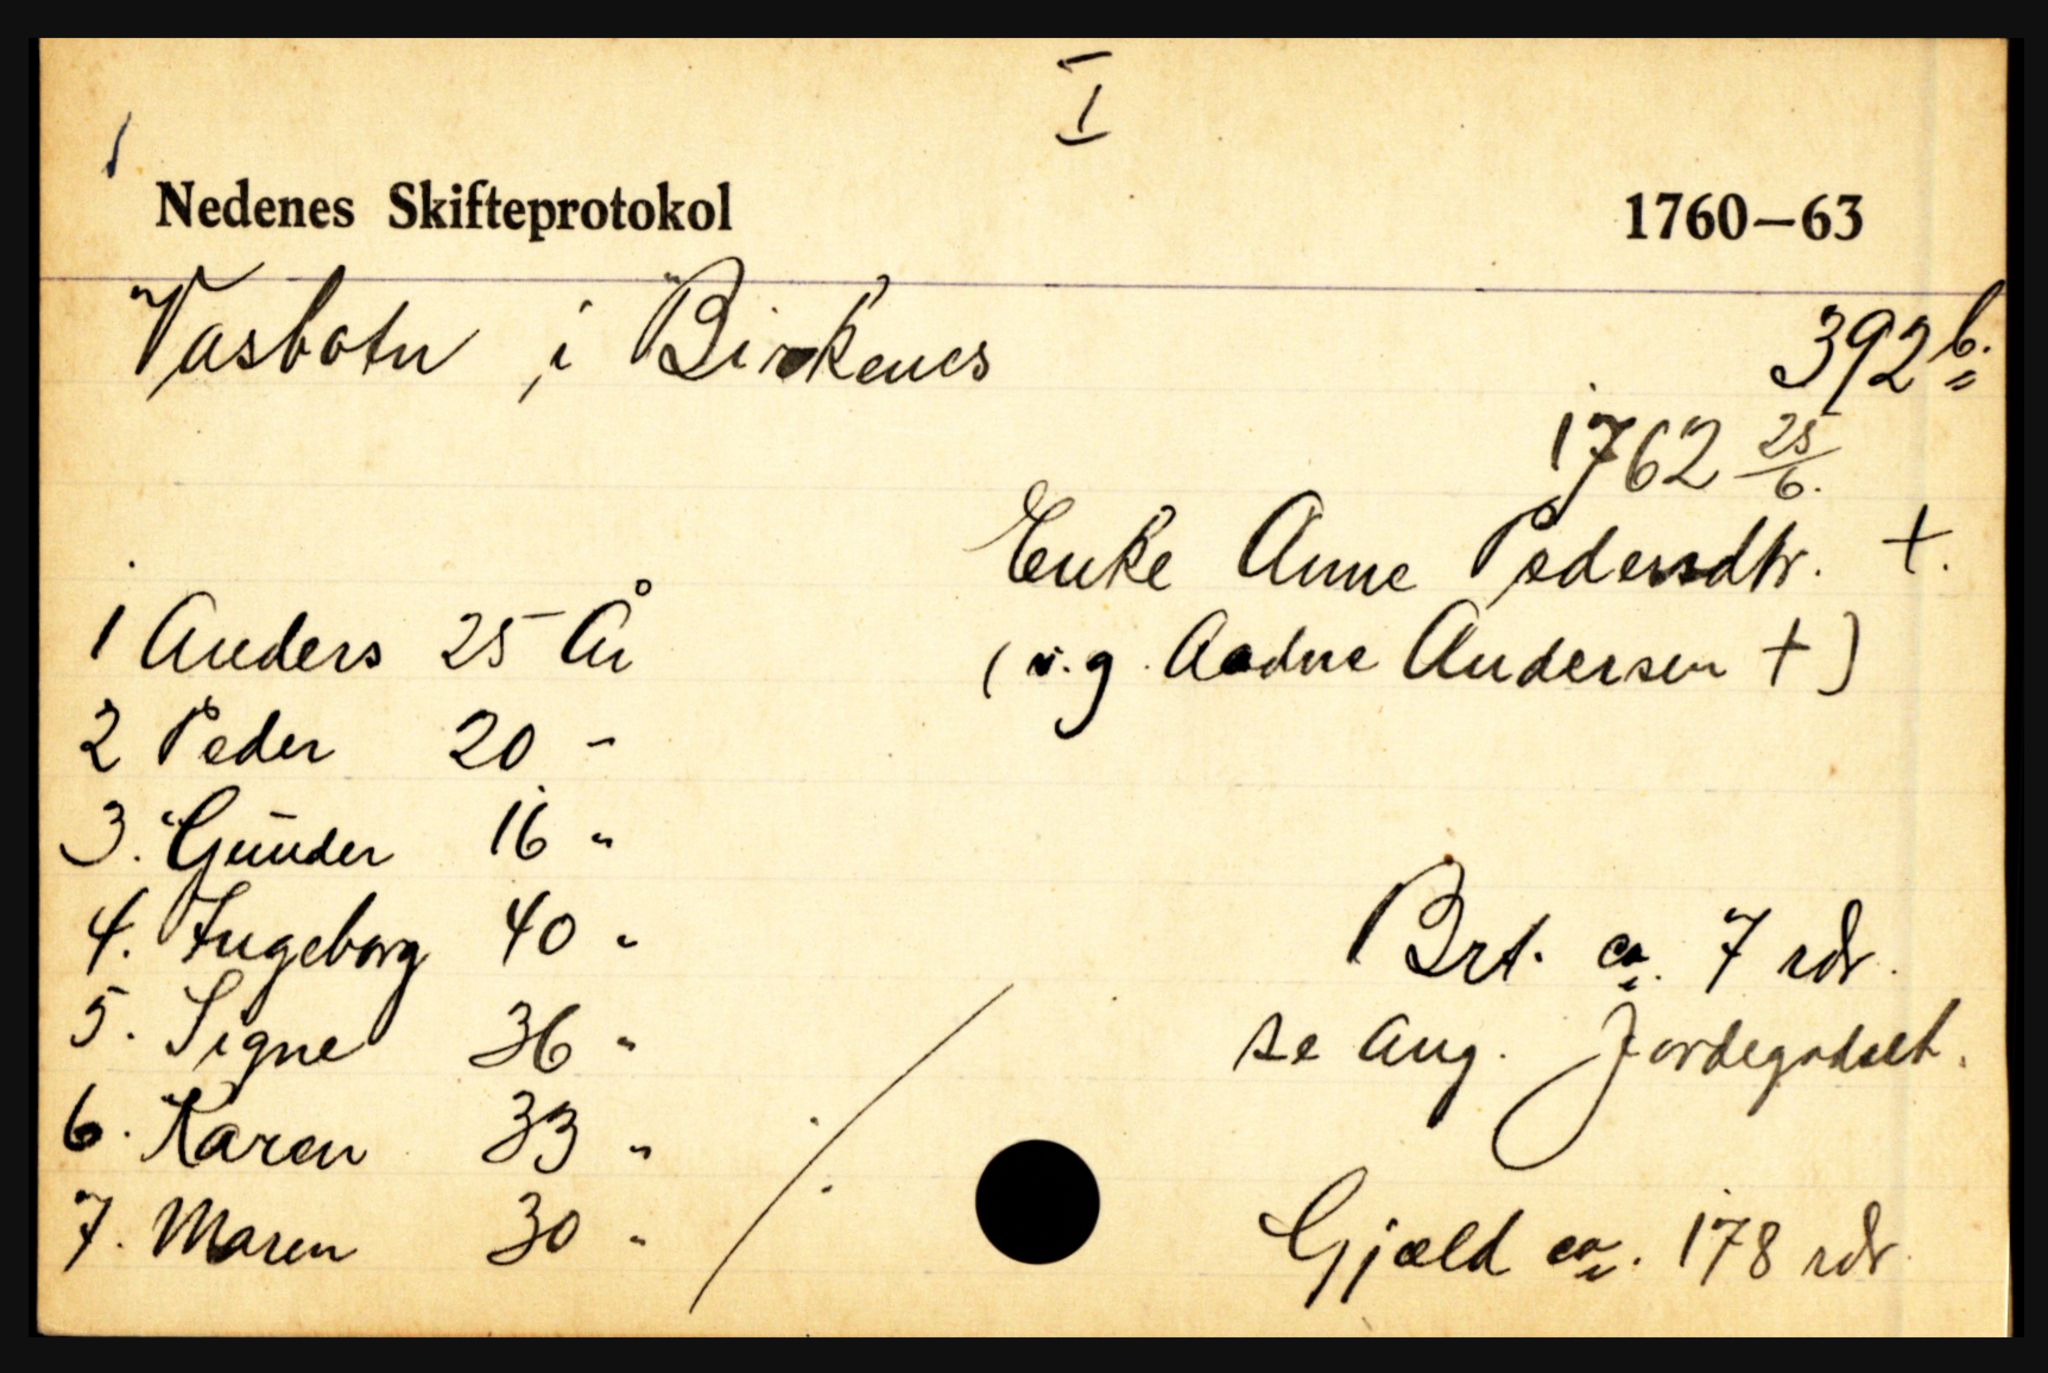 I
Nedenes Skifteprotokol 1760–63
Vasbotn i Birkenes 392b.
1762 25/6.
Enke Anne Pedersdtr. +.
(v. g. Aadne Andersen +)
1 Anders 25 År
2 Peder 20 "
3. Gunder 16 "
4. Ingeborg 40 "
5. Signe 36 "
6. Karen 33 "
7. Maren 30 "
Brt. ca. 7 rdr.
se ang. Jordegodset.
Gjæld ca. 178 rdr.